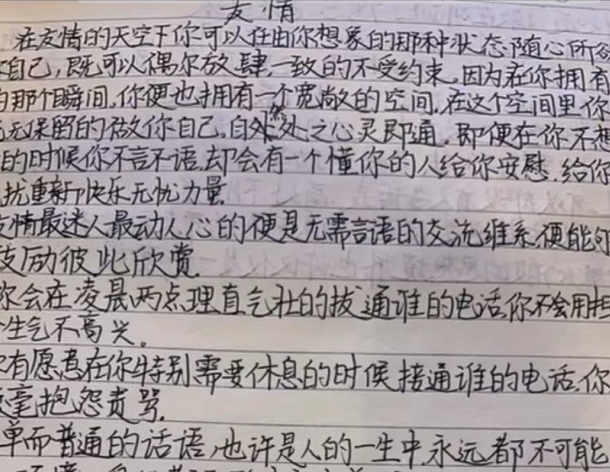 友情
在友情的天空下你可以在由你想象的那种状态随心所欲
自己,既可以偶尔放肆.一致的不受约束.因为在你拥有
的那个瞬间.你便也拥有一个宽敞的空间.在这个空间里你
无保留的做你自己.自然处之心灵即通.即便在你不想
的时候你不言不语.却会有一个懂你的人给你安慰.给你
扰重新快乐无忧力量.
友情最迷人最动人心的便是无需言语的交流维系便能够
鼓励彼此欣赏.
你会在凌晨两点理直气壮的拔通谁的电话.你不会用担
生气不高兴。
有愿意在你特别需要休息的时候接通谁的电话.你
毫抱怨责骂.
单而普通的话语,也许是人的一生中永远都不可能